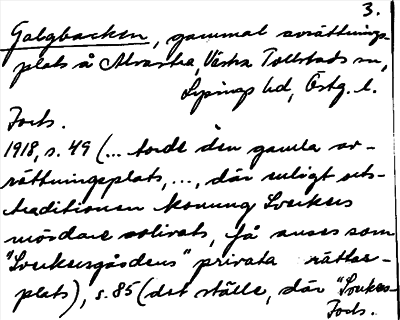 3.
Galgbacken, gammal avrättnings-
plats å Alvastra, Västra Tollstads sn,
Lysings hd, Östg. l.
Forts.
1918, s. 49 (... torde den gamla av-
rättningsplats, ..., där enligt orts-
traditionen konung Sverkers
mördare avlivats, få anses som
"Sverkersgårdens" privata rätter-
plats), s. 85 (det ställe, där "Sverkers-
Forts.